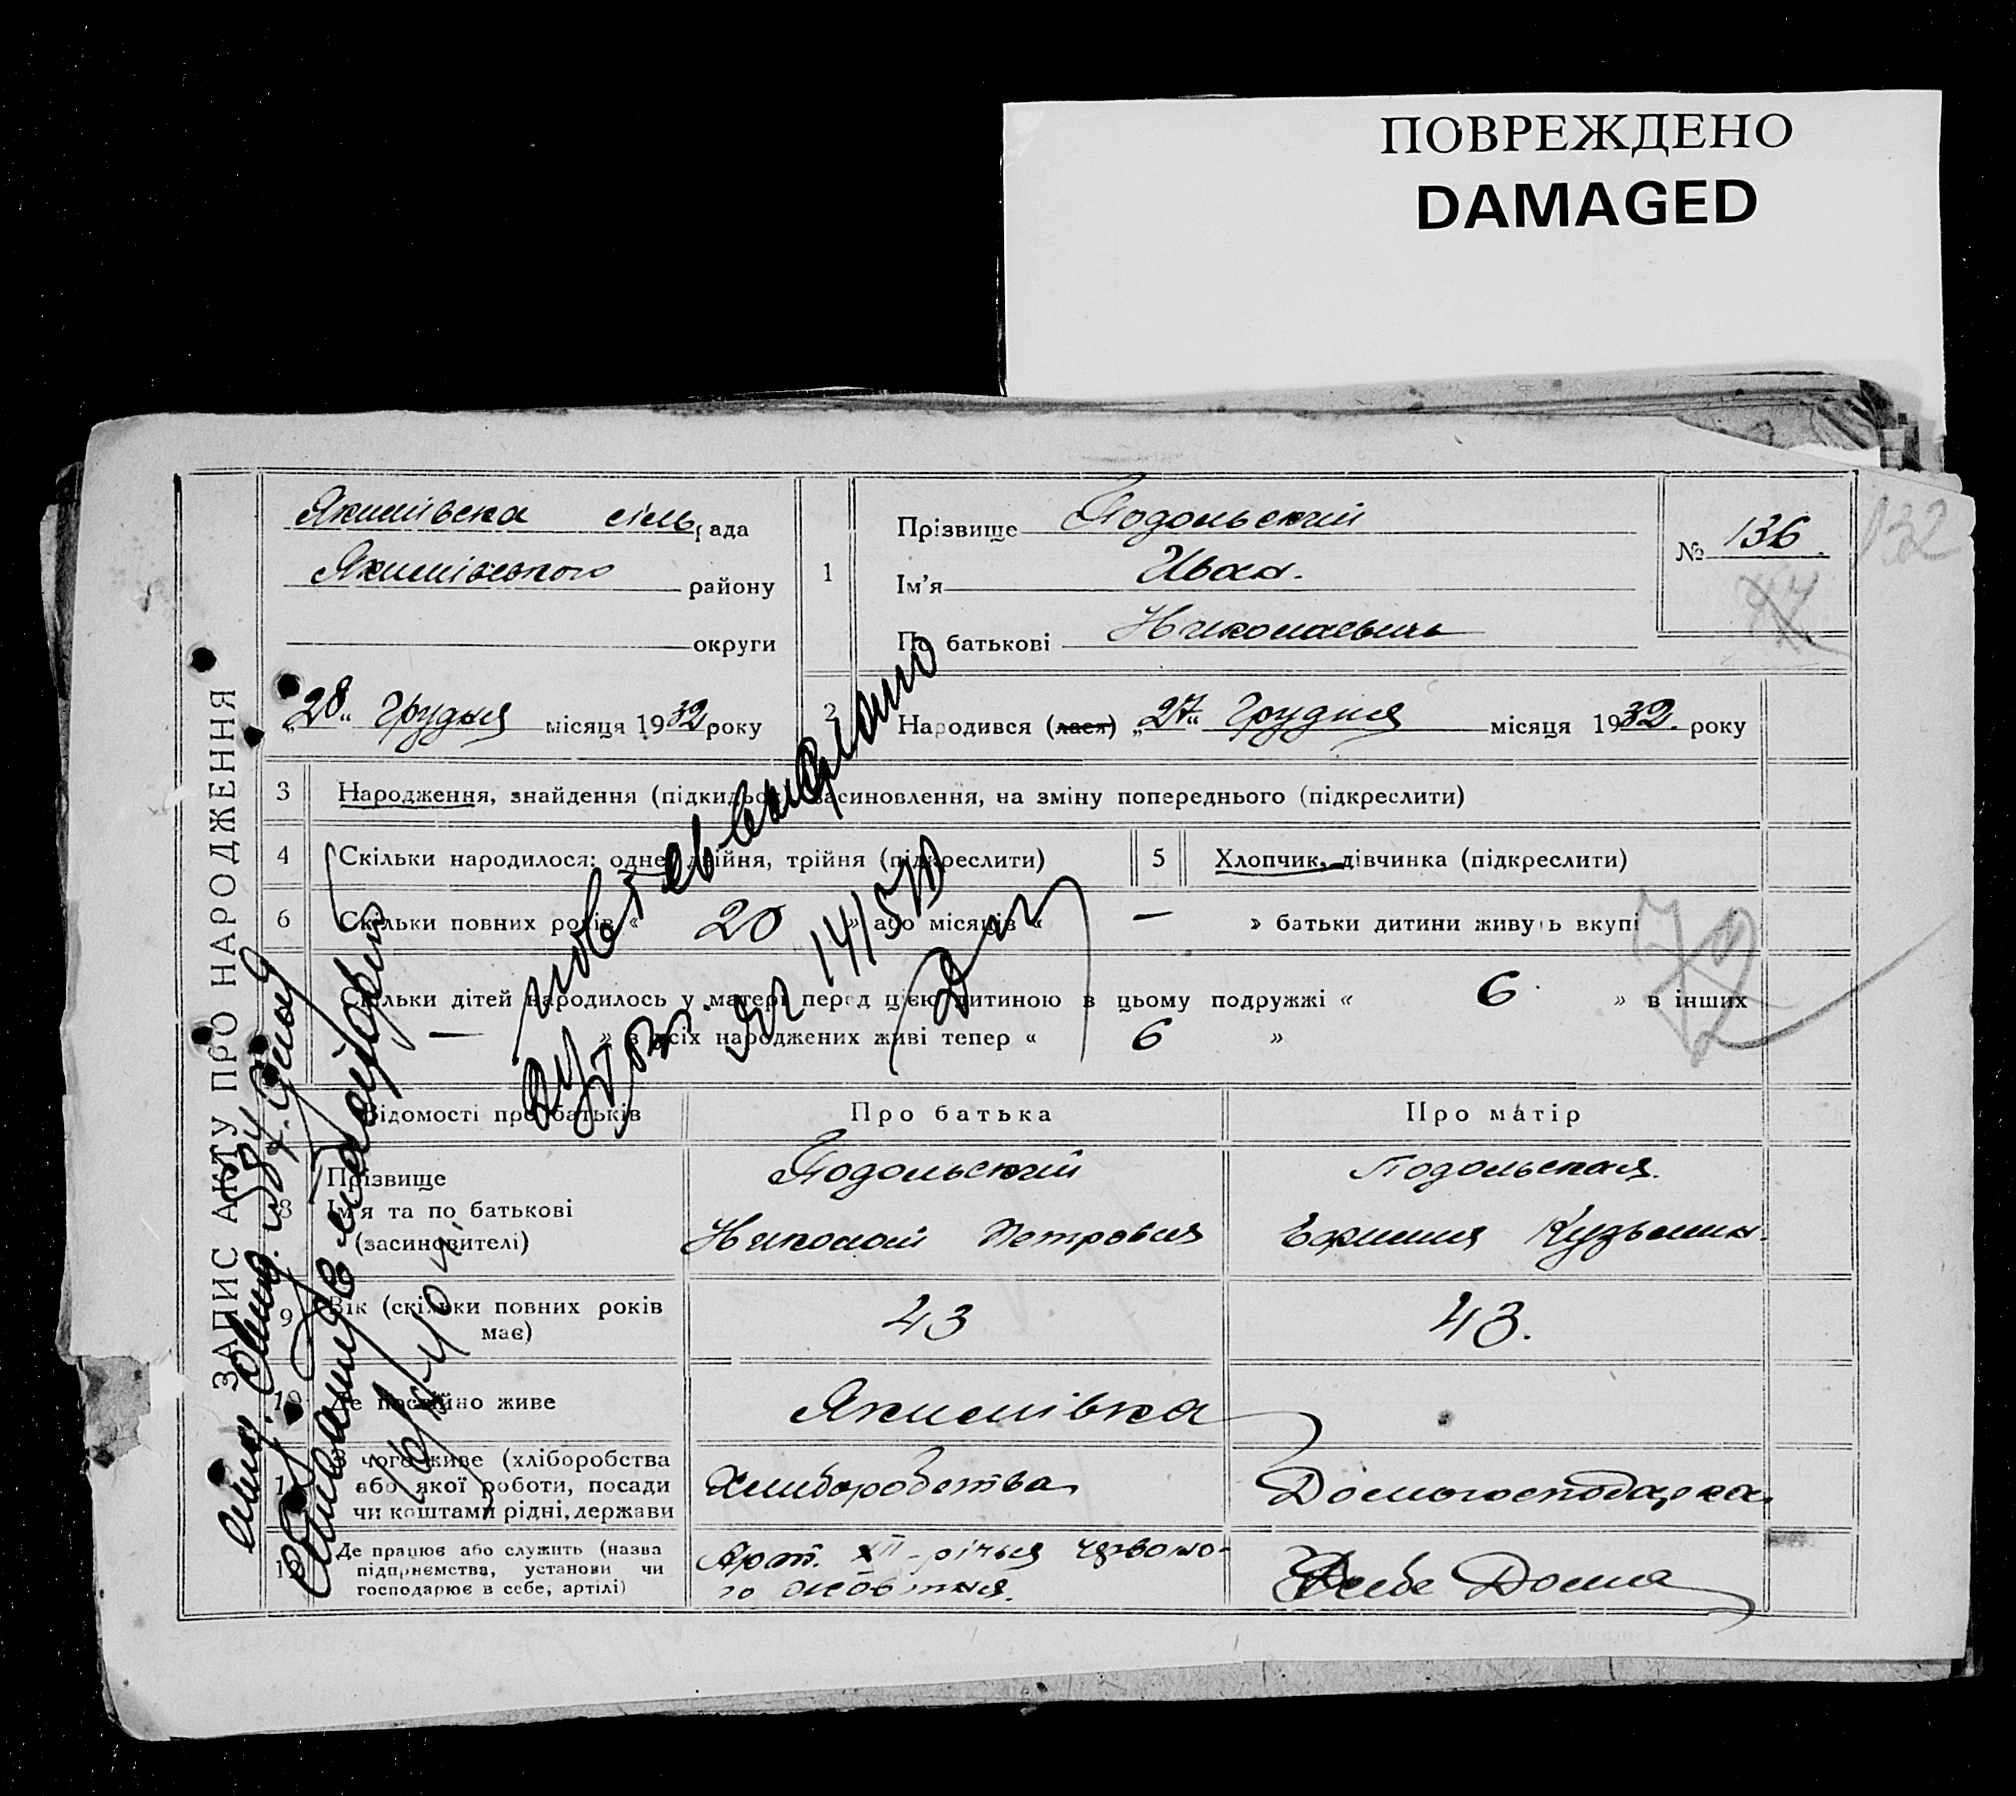 ПОВРЕЖДЕНО
DAMAGED
ЗАПИС АКТУ ПРО НАРОДЖЕННЯ
Якимівска сільрада
Якимівського району
округи
„28“ Грудня місяця 1932 року
1
Прізвище Подольский
Ім'я Иван.
По батькові Николаевичь
№ 136
132
2
Народився (лася) „27“ Грудня місяця 1932 року
3 Народження, знайдення засиновлення, на зміну попереднього (підкреслити)
4 Скільки народилося: одне, двійня, трійня (підкреслити)
5 Хлопчик, дівчинка (підкреслити)
6 Скільки повних років « 20 » або місяців « — » батьки дитини живуть вкупі
72
Скільки дітей народилось у матері перед цією дитиною в цьому подружжі « 6 » в інших
— » з усіх народжених живі тепер « 6 »
Відомості про батьків Про батька Про матір
8 Прізвище
Ім'я та по батькові
(засиновителі)
Подольский
Николай Петровия
Подольская.
Ефимия Кузьмин.
9 Вік (скільки повних років має) 43 43.
10 Де постійно живе Якимівка
З чого живе (хліборобства
або якої роботи, посади
чи коштами рідні, держави
Хлиборобства
Домогосподарка
12 Де працює або служить (назва
підприємства, установи чи
господарює в себе, артілі)
Арт. XII-річья червоно-
го жовтня.
Дома